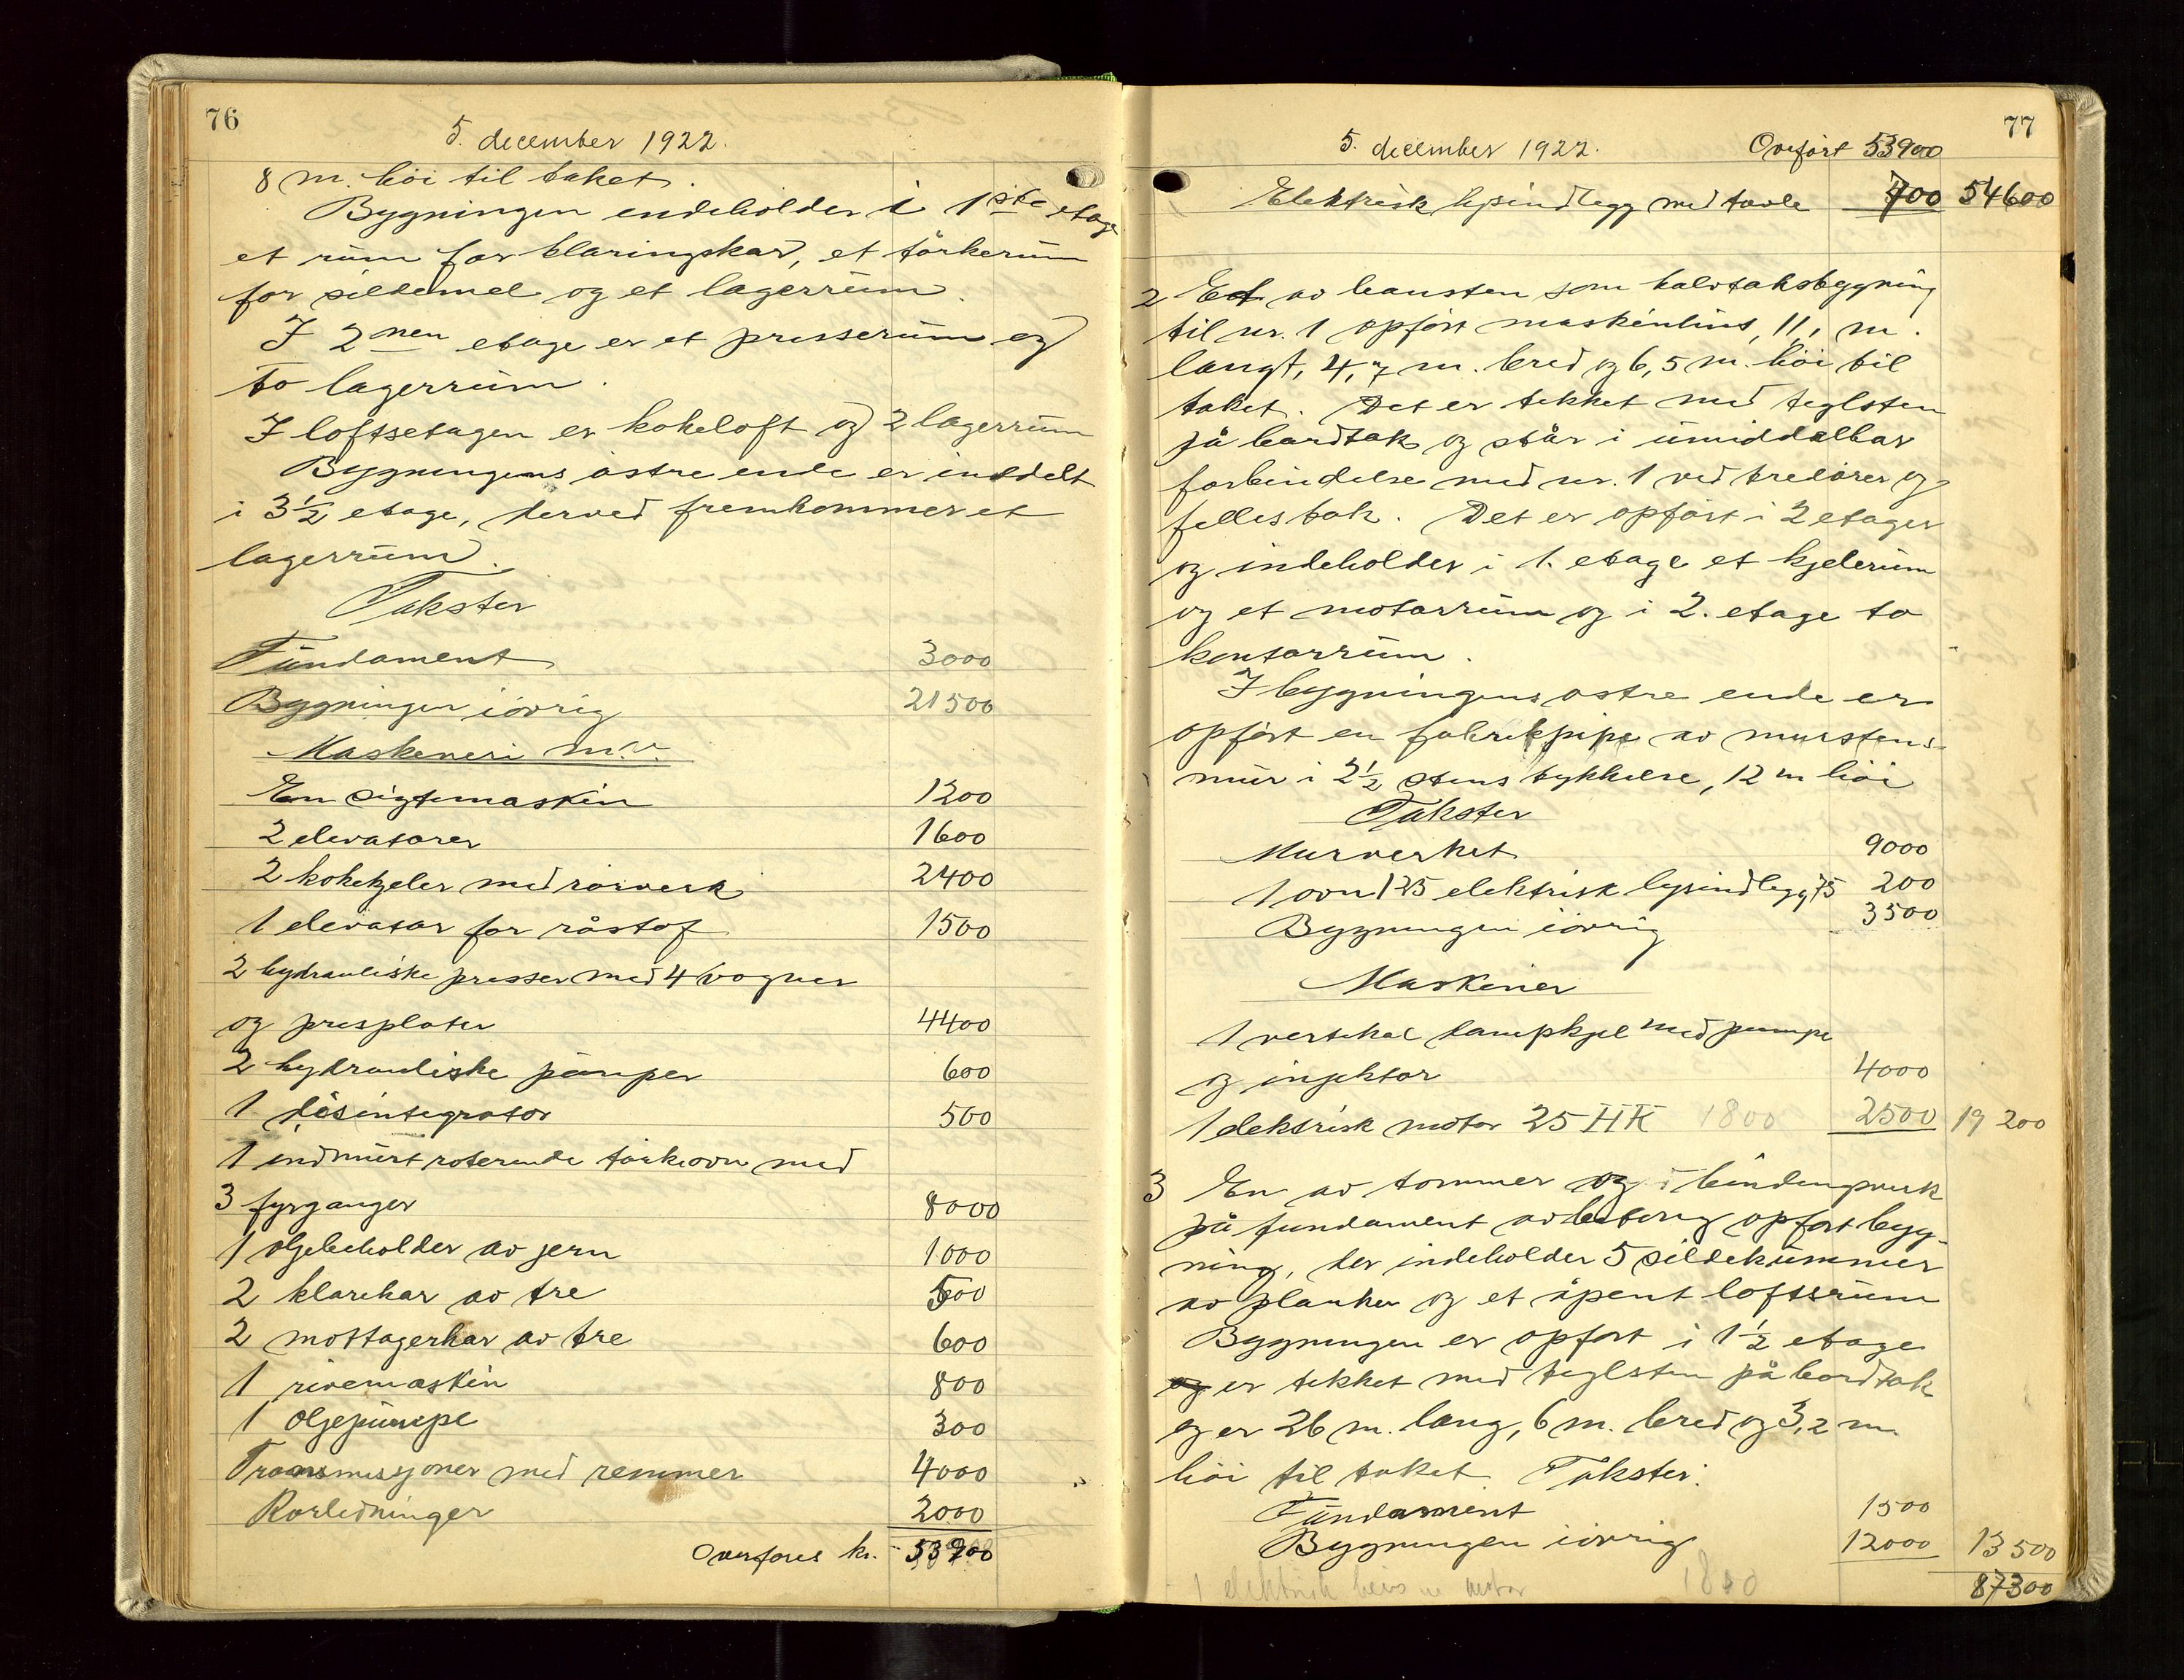 76
5. december 1922.
8 m. höi til taket.
Bygningen endeholder i 1ste etage
et rum for klaringskar, et törkerum
for sildemel og et lagerrum.
I 2nen etage er et presserum og
to lagerrum.
I loftsetagen er kokeloft og 2 lagerrum
Bygningens östre ende er inddelt
i 3 1/2 etage, derved fremkommer et
lagerrum.
Takster
Fundament 3000
Bygningen iövrig 21500
Maskeneri m.v.
En sigtemaskin 1200
2 elevatorer 1600
2 kokekjeler med rörverk 2400
1 elevator for råstof 1500
2 hydrauliske presser med 4 vogner
og presplater 4400
2 hydrauliske pumper 600
1 disintegrator 500
1 indmurt roterende törkeovn med
3 fyrganger 8000
1 oljebeholder av jern 1000
2 klarekar av tre 500
2 mottagerkar av tre 600
1 rivemaskin 800
1 oljepumpe 300
Transmissjoner med remmer 4000
Rörledninger 2000
Overföres kr. 53900
77
5. december 1922. Overfört 53900
Elektrisk lysindlegg med tavle 700 54600
2 Et av hausten som halvtaksbygning
til nr. 1 opfört maskinhus, 11,1 m.
langt, 4,7 m. bred og 6,5 m. höi til
taket. Det er tekket med teglsten
på bordtak og står i umiddelbar
forbindelse med nr. 1 ved tredörer og
felles tak. Det er opfört i 2 etager
og indeholder i 1. etage et kjelerum
og et motorrum og i 2. etage to
kontorrum.
I bygningens östre ende er
opfört en fabrikpipe av murstens-
mur i 2 1/2 stens tykkelse, 12 m höi
Takster
Murverket 9000
1 ovn 125 elektrisk lysindlegg 75 200
Bygningen iövrig 3500
Maskiner
1 vertikal dampkjel med pumpe
og injektor 4000
1 elektrisk motor 25 HK 1800 2500 19 200
3 En av tömmer og i bindingsverk
på fundament av betong opfört byg-
ning, der indeholder 5 sildekummer
av planker og et åpent loftsrum
Bygningen er opfört i 1 1/2 etage
og er tekket med teglsten på bordtak
og er 26 m. lang, 6 m. bred og 3,2 m
höi til taket. Takster:
Fundament 1500
Bygningen iövrig 12000 13500
1 elektrisk heis m motor 1800
87300